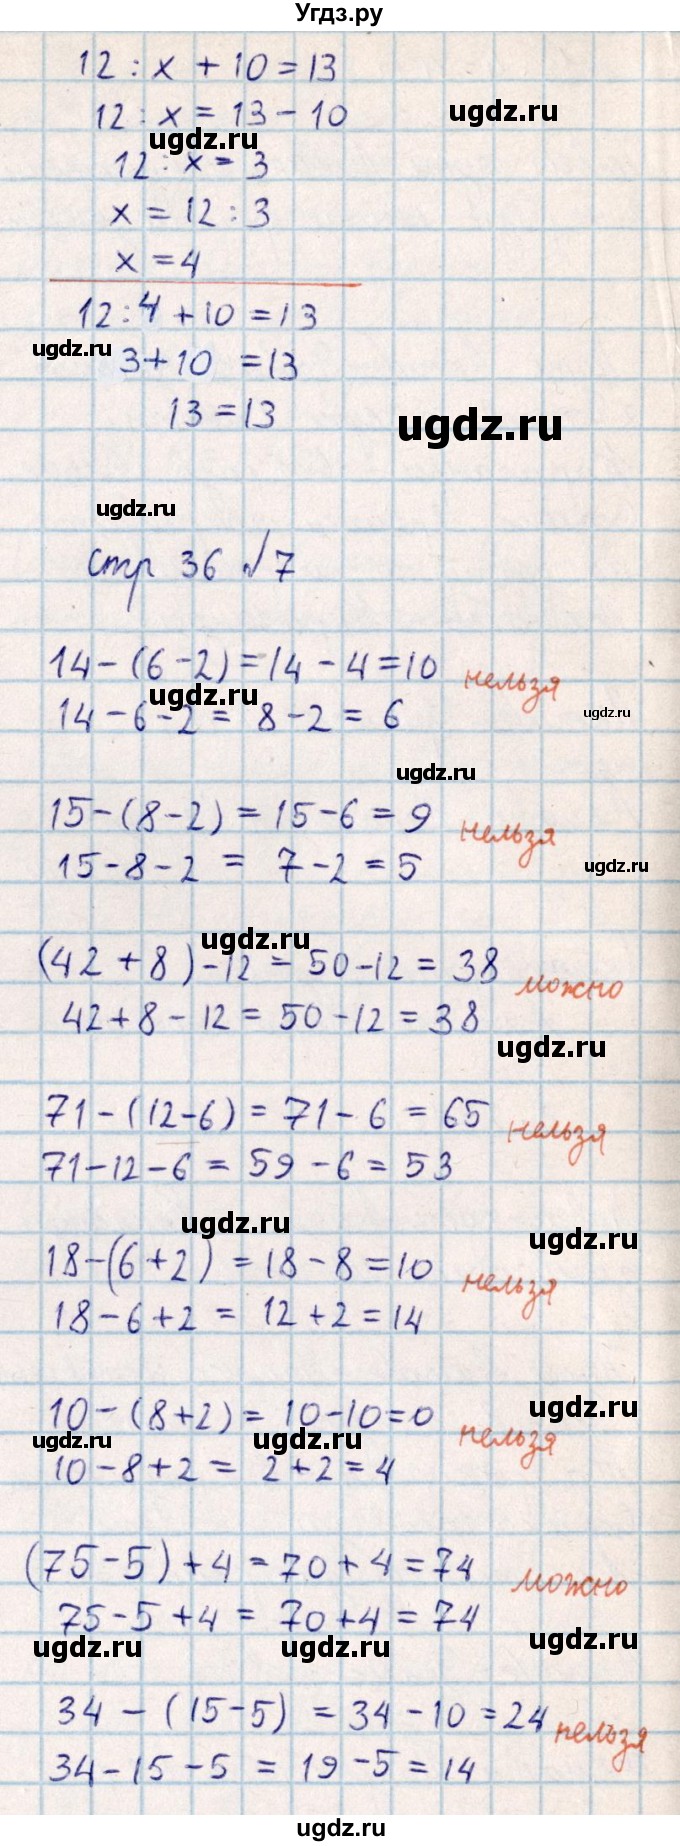 Угдз.ру
12 : x + 10 = 13
ugdz.ru
12 : x = 13 - 10
ugdz.ru
12 : x = 3
x = 12 : 3
x = 4
12 : 4 + 10 = 13
ugdz.ru
3 + 10 = 13
13 = 13
ugdz.ru
ugdz.ru
стр 36 №7
14 - (6 - 2) = 14 - 4 = 10 нельзя
ugdz.ru
14 - 6 - 2 = 8 - 2 = 6
ugdz.ru
ugdz.ru
15 - (8 - 2) = 15 - 6 = 9 нельзя
15 - 8 - 2 = 7 - 2 = 5
ugdz.ru
ugdz.ru
(42 + 8) - 12 = 50 - 12 = 38 можно
42 + 8 - 12 = 50 - 12 = 38
ugdz.ru
71 - (12 - 6) = 71 - 6 = 65 нельзя
71 - 12 - 6 = 59 - 6 = 53
ugdz.ru
ugdz.ru
18 - (6 + 2) = 18 - 8 = 10 нельзя
18 - 6 + 2 = 12 + 2 = 14
ugdz.ru
10 - (8 + 2) = 10 - 10 = 0 нельзя
ugdz.ru
ugdz.ru
10 - 8 + 2 = 2 + 2 = 4
(75 - 5) + 4 = 70 + 4 = 74 можно
75 - 5 + 4 = 70 + 4 = 74
ugdz.ru
ugdz.ru
ugdz.ru
34 - (15 - 5) = 34 - 10 = 24 нельзя
34 - 15 - 5 = 19 - 5 = 14
ugdz.ru